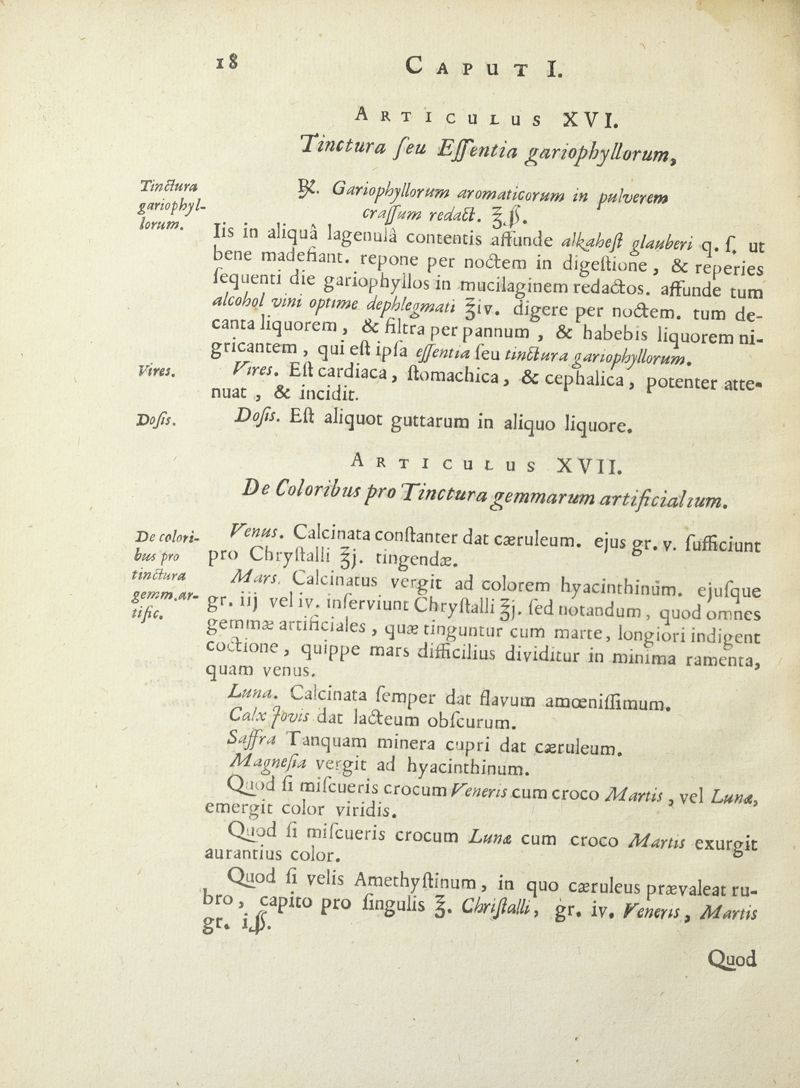 18
CAPUT I.
ARTICULUS XVI.
Tinctura ſeu Eſſentia gariophyllorum,
Tinctura
gariophyl-
lorum.
℞. Gariophyllorum aromaticorum in pulverem
craſſum redact. ℥ ß.
Iis in aliquâ lagenulâ contentis affunde alkaheſt glauberi q. ſ. ut
bene madefiant. repone per noctem in digeſtione, & reperies
ſequenti die gariophyllos in mucilaginem redactos. affunde tum
alcohol vini optime dephlegmati ℥iv. digere per noctem. tum de-
canta liquorem, & filtra per pannum, & habebis liquorem ni-
gricantem, qui eſt ipſa eſſentia ſeu tinctura gariophyllorum.
Vires.
Vires. Eſt cardiaca, ſtomachica, & cephalica, potenter atte-
nuat, & incidit.
Doſis.
Doſis. Eſt aliquot guttarum in aliquo liquore.
ARTICULUS XVII.
De Coloribus pro Tinctura gemmarum artificialium.
De colori-
bus pro
tinctura
gemm.ar-
tific.
Venus. Calcinata conſtanter dat cæruleum. ejus gr. v. ſufficiunt
pro Chryſtalli ℥j. tingendæ.
Mars. Calcinatus vergit ad colorem hyacinthinum. ejuſque
gr. iij vel iv. inſerviunt Chryſtalli ℥j. ſed notandum, quod omnes
gemmæ artificiales, quæ tinguntur cum marte, longiori indigent
coctione, quippe mars difficilius dividitur in minima ramenta,
quam venus.
Luna. Calcinata ſemper dat flavum amœniſſimum.
Calx Jovis dat lacteum obſcurum.
Saffra Tanquam minera cupri dat cæruleum.
Magneſia vergit ad hyacinthinum.
Quod ſi miſcueris crocum Veneris cum croco Martis, vel Lunæ,
emergit color viridis.
Quod ſi miſcueris crocum Lunæ cum croco Martis exurgit
aurantius color.
Quod ſi velis Amethyſtinum, in quo cæruleus prævaleat ru-
bro, capito pro ſingulis ℥. Chriſtalli, gr. iv. Veneris, Martis
gr. iß.
Quod